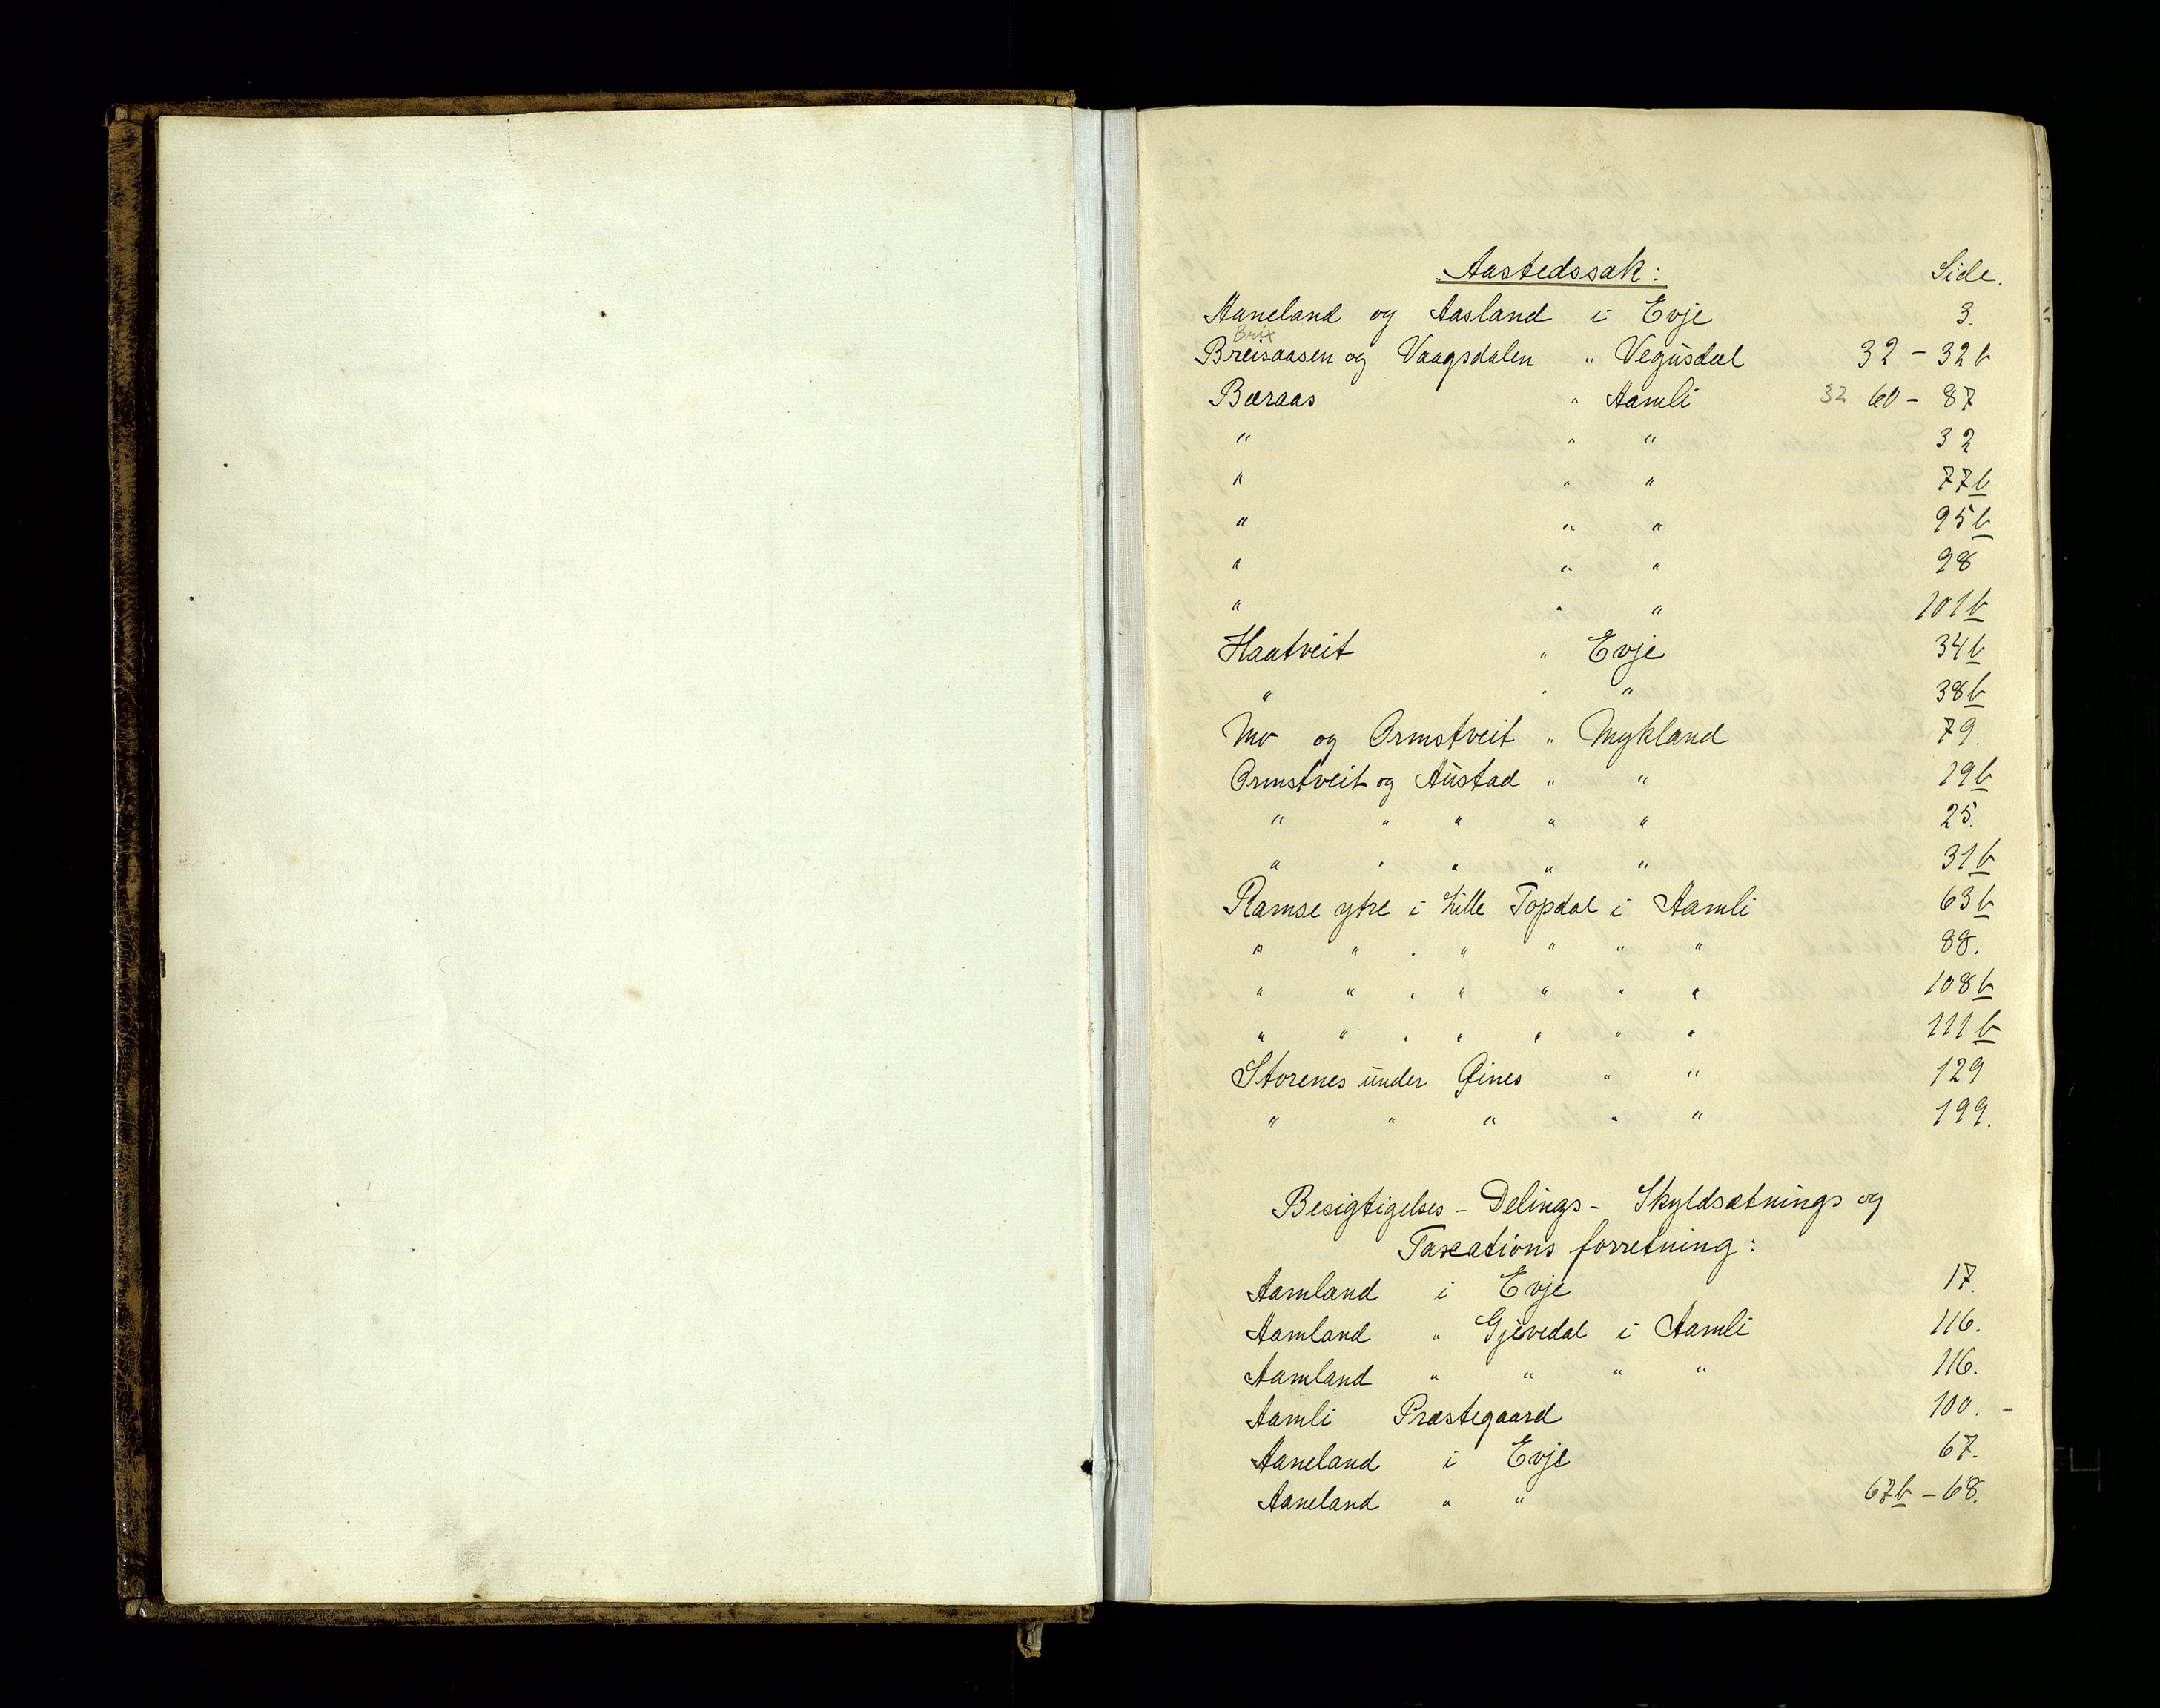 Aastedssak: Side.
Aaneland og Aasland i Evje 3.
Brix
Breisaasen og Vaagsdalen " Vegusdal 32 - 32 b
Bæraas " Aamli 32 60 - 87
" " " 32
" " " 77 b
" " " 95 b
" " " 98
" " " 101 b
Haatveit " Evje 34 b
" " " 38 b
Mo og Ormstveit " Mykland 79.
Ormstveit og Austad " " 19 b
" " " " " 25.
" " " " " 31 b
Ramse ytre i Lille Topdal i Aamli 63 b
" " " " " " " 88.
" " " " " " " 108 b
" " " " " " " 111 b
Storenes under Øines " " 129
" " " " " 199.
Besigtigelses - Delings - Skyldsætnings og
Taxations forretning:
Aamland i Evje 17.
Aamland " Gjøvedal i Aamli 116.
Aamland " " " " 116.
Aamli Præstegaard 100. -
Aaneland i Evje 67.
Aaneland " " 67 b - 68.